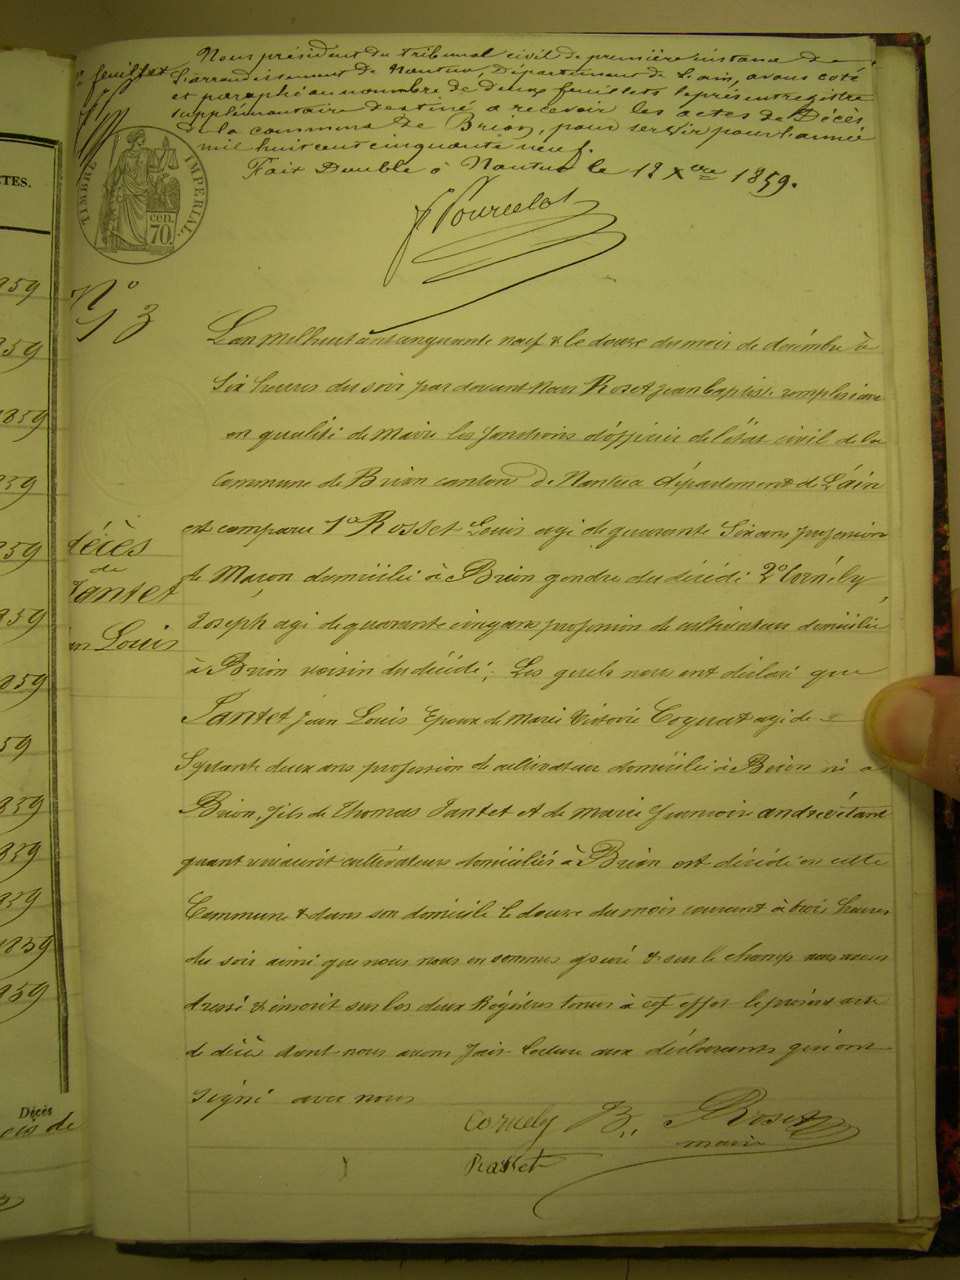 Nous président du tribunal civil de première instance de
l'arrondissement de Nantua, Département de l'ain, avons coté
et paraphé au nombre de deux feuillets le présent registre
supplémentaire destiné a recevoir les actes de Décès
de la commune de Brion, pour servir pour l'année
mil huit cent cinquante neuf.
Fait Double à Nantua le 12 Xbre 1859.
feuillet
TIMBRE IMPERIAL.
70 cen.
N°
13
décès
de
Jantet
Jean Louis
L'an Mil huit cent cinquante neuf & le douze du mois de décembre à
Six heures du soir par devant Nous Roset jean baptiste remplissant
en qualité de Maire les fonctions d'officier de l'état civil de la
Commune de Brion canton De Nantua département de L'ain
est comparu 1° Rosset Louis agé de quarante Six ans profession
de Maçon domicilié à Brion gendre du décédé 2° Cornély
Joseph agé de quarante cinq ans profession de cultivateur domicilié
à Brion voisin du décédé; Les quels nous ont déclaré que
Jantet Jean Louis Epoux de Marie Victoire Coquat agé de
Septante deux ans profession de cultivateur domicilié à Brion né à
Brion, fils de Thomas Jantet et de Marie Françoise andré étant
quant vivaient cultivateurs domiciliés à Brion est décédé en cette
Commune & dans son domicile le douze du mois courant à trois heures
du soir ainsi que nous nous en sommes assuré & sur le champ nous avons
dressé & inscrit sur les deux Régistres tenus à cet effet le présent acte
de décès dont nous avons fait lecture aux déclarants qui ont
Signé avec nous
Cornely B. Roset
maire
Rosset
TES.
1859
1859
1859
1859
1859
1859
1859
1859
1859
1859
1859
1859
1859
Décès
de